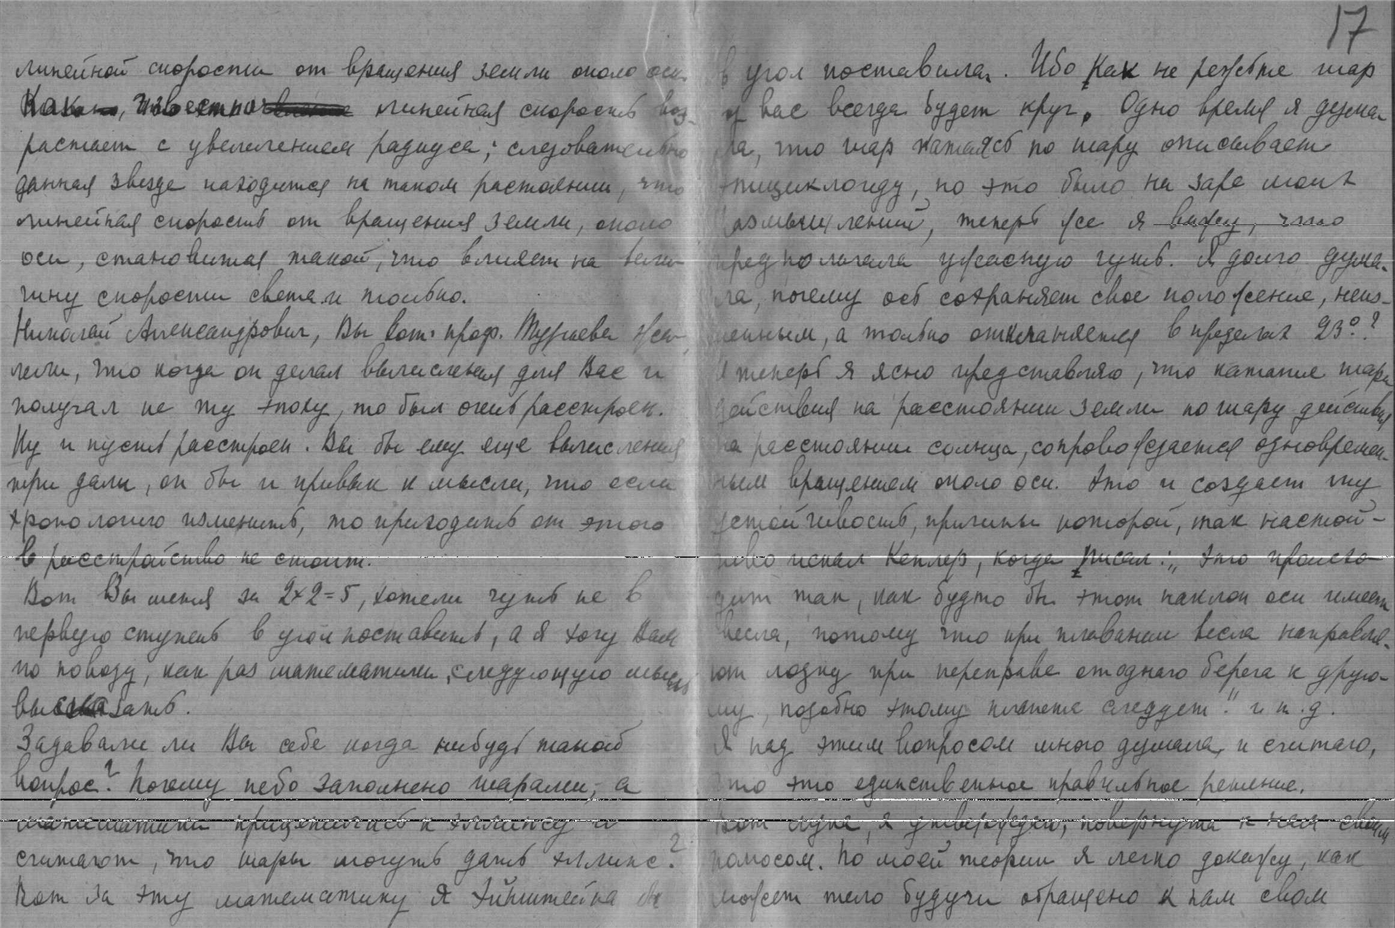 17
линейной скорости от вращения земли около оси.
Как известно линейная скорость воз-
растает с увеличением радиуса; следовательно
данная звезда находится на таком растоянии, что
линейная скорость от вращения земли, около
оси, становится такой, что влияет на вели-
чину скорости света и только.
Николай Александрович, Вы проф. Тураева
что когда он делал вычисления для Вас и
получал не ту эпоху, то был очень расстроен.
Ну и пусть расстроен. Вы бы ему еще вычисления
при дали, он бы и привык к мысли, что если
хронологию изменить, то приходить от этого
в расстройство не стоит.
Вот Вы меня за 2×2=5, хотели чуть не в
первую ступень в угол поставить, а я хочу Вам
по поводу, как раз математики, следующую мысль
высказать.
Задавали ли Вы себе когда нибудь такой
вопрос? Почему небо заполнено шарами, а
математики прицепились к эллипсу и
считают, что шары могут дать эллипс?
Вот за эту математику я Эйнштейна бы
в угол поставила. Ибо как не режьте шар
у вас всегда будет круг. Одно время я дума-
ла, что шар катаясь по шару описывает
эпициклоиду, но это было на заре моих
размышлений, теперь же я вижу, что
предполагала ужасную чушь. Я долго дума-
ла, почему ось сохраняет свое положение, неиз-
менным, а только отклоняется в пределах 23°?
И теперь я ясно представляю, что катание шара
действия на расстоянии земли по шару действия
на расстоянии солнца, сопровождается одновремен-
ным вращением около оси. Это и создает ту
устойчивость, причины которой, так настой-
чиво искал Кеплер, когда писал: „Это происхо-
дит так, как будто бы этот наклон оси имеет
весла, потому что при плавании весла направля-
ют лодку при переправе от одного берега к друго-
му, подобно этому планета следует" и т.д.
Я над этим вопросом много думала, и считаю,
что это единственное правильное решение.
Вот луна, я утверждаю, повернута к нам своим
полюсом. По моей теории я легко докажу, как
может тело будучи обращено к нам свом